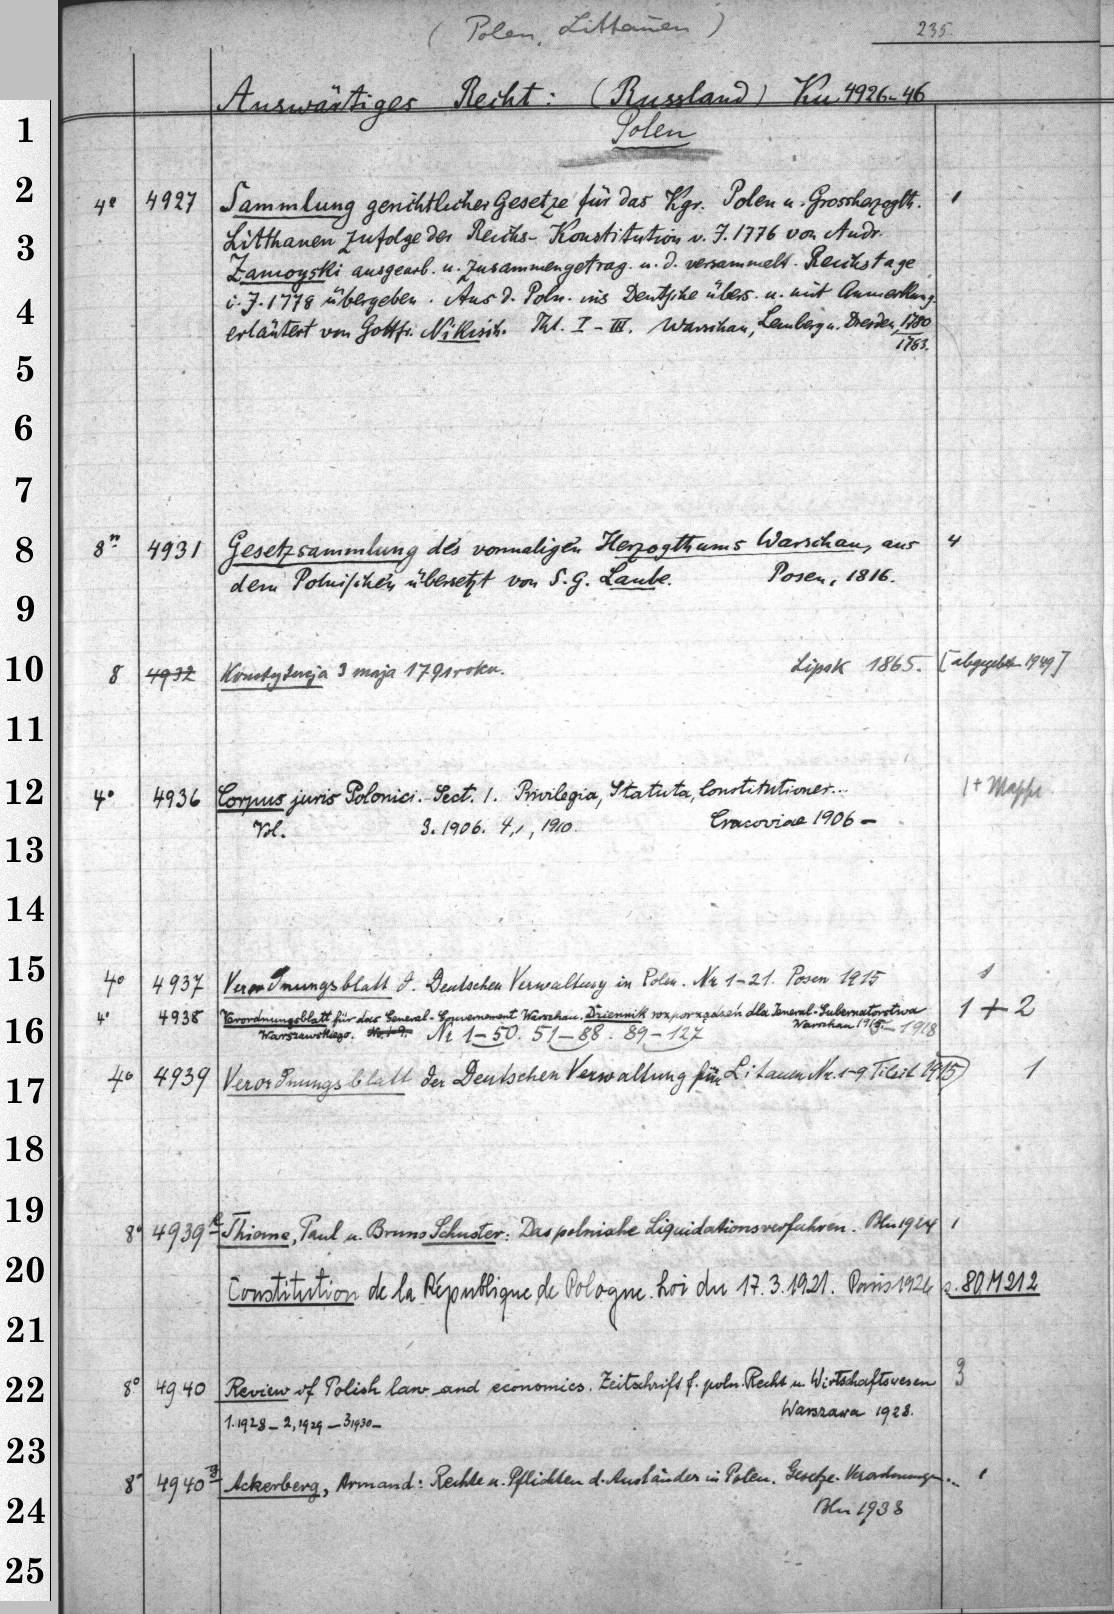 ( Polen, Littauen )
235.
Auswärtiges Recht: (Russland) Ku 4926-46
Polen
1
2
3
4
5
6
7
8
9
10
11
12
13
14
15
16
17
18
19
20
21
22
23
24
25
4° 4927 Sammlung gerichtlicher Gesetze für das Kgr. Polen u. Grossherzogth. 1
Litthauen zufolge der Reichs-Konstitution v. J. 1776 von Andr.
Zamoyski ausgearb. u. zusammengetrag. u. d. versammelt. Reichstage
i. J. 1778 übergeben. Aus d. Poln. ins Deutsche übers. u. mit Anmerkung.
erläutert von Gottfr. Nikisch. Thl. I-III. Warschau, Lemberg u. Dresden, 1780
1783.
8° 4931 Gesetzsammlung des vormaligen Herzogthums Warschau, aus 4
dem Polnischen übersetzt von S. G. Laube. Posen, 1816.
8 4932 Konstytucja 3 maja 1791 roku. Lipsk 1865. [abgegeben 1949]
4° 4936 Corpus juris Polonici. Sect. 1. Privilegia, Statuta, Constitutiones... 1 + Mappe
Vol. 3. 1906. 4,1, 1910. Cracoviae 1906 -
4° 4937 Verordnungsblatt d. Deutschen Verwaltung in Polen. Nr 1-21. Posen 1915 1
4° 4938 Verordnungsblatt für das General-Gouvernement Warschau. Dziennik rozporządzeń dla Jeneral-Gubernatorstwa 1 + 2
Warszawskiego. Nr 1-9. Nr 1-50. 51-88. 89-127 Warschau 1915-1918
4° 4939 Verordnungsblatt der Deutschen Verwaltung für Litauen Nr. 1-9. Tilsit 1915) 1
8° 4939 R Thieme, Paul u. Bruno Schuster: Das polnische Liquidationsverfahren. Bln 1924 1
Constitution de la République de Pologne. Loi du 17.3.1921. Paris 1926 s. 80 M 212
8° 4940 Review of Polish law and economics. Zeitschrift f. poln. Recht u. Wirtschaftswesen 3
Warszawa 1928.
1. 1928 - 2, 1929 - 3 1930 -
8° 4940 Ackerberg, Armand: Rechte u. Pflichten d. Ausländer in Polen. Gesetze. Verordnungen... 1
Bln 1938